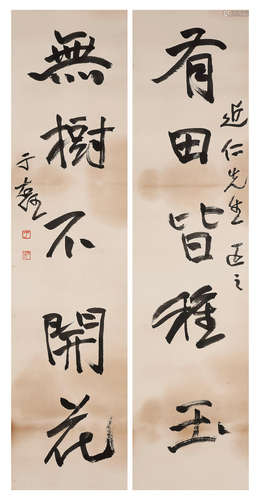 近仁先生正之
有田皆種玉
無樹不開花